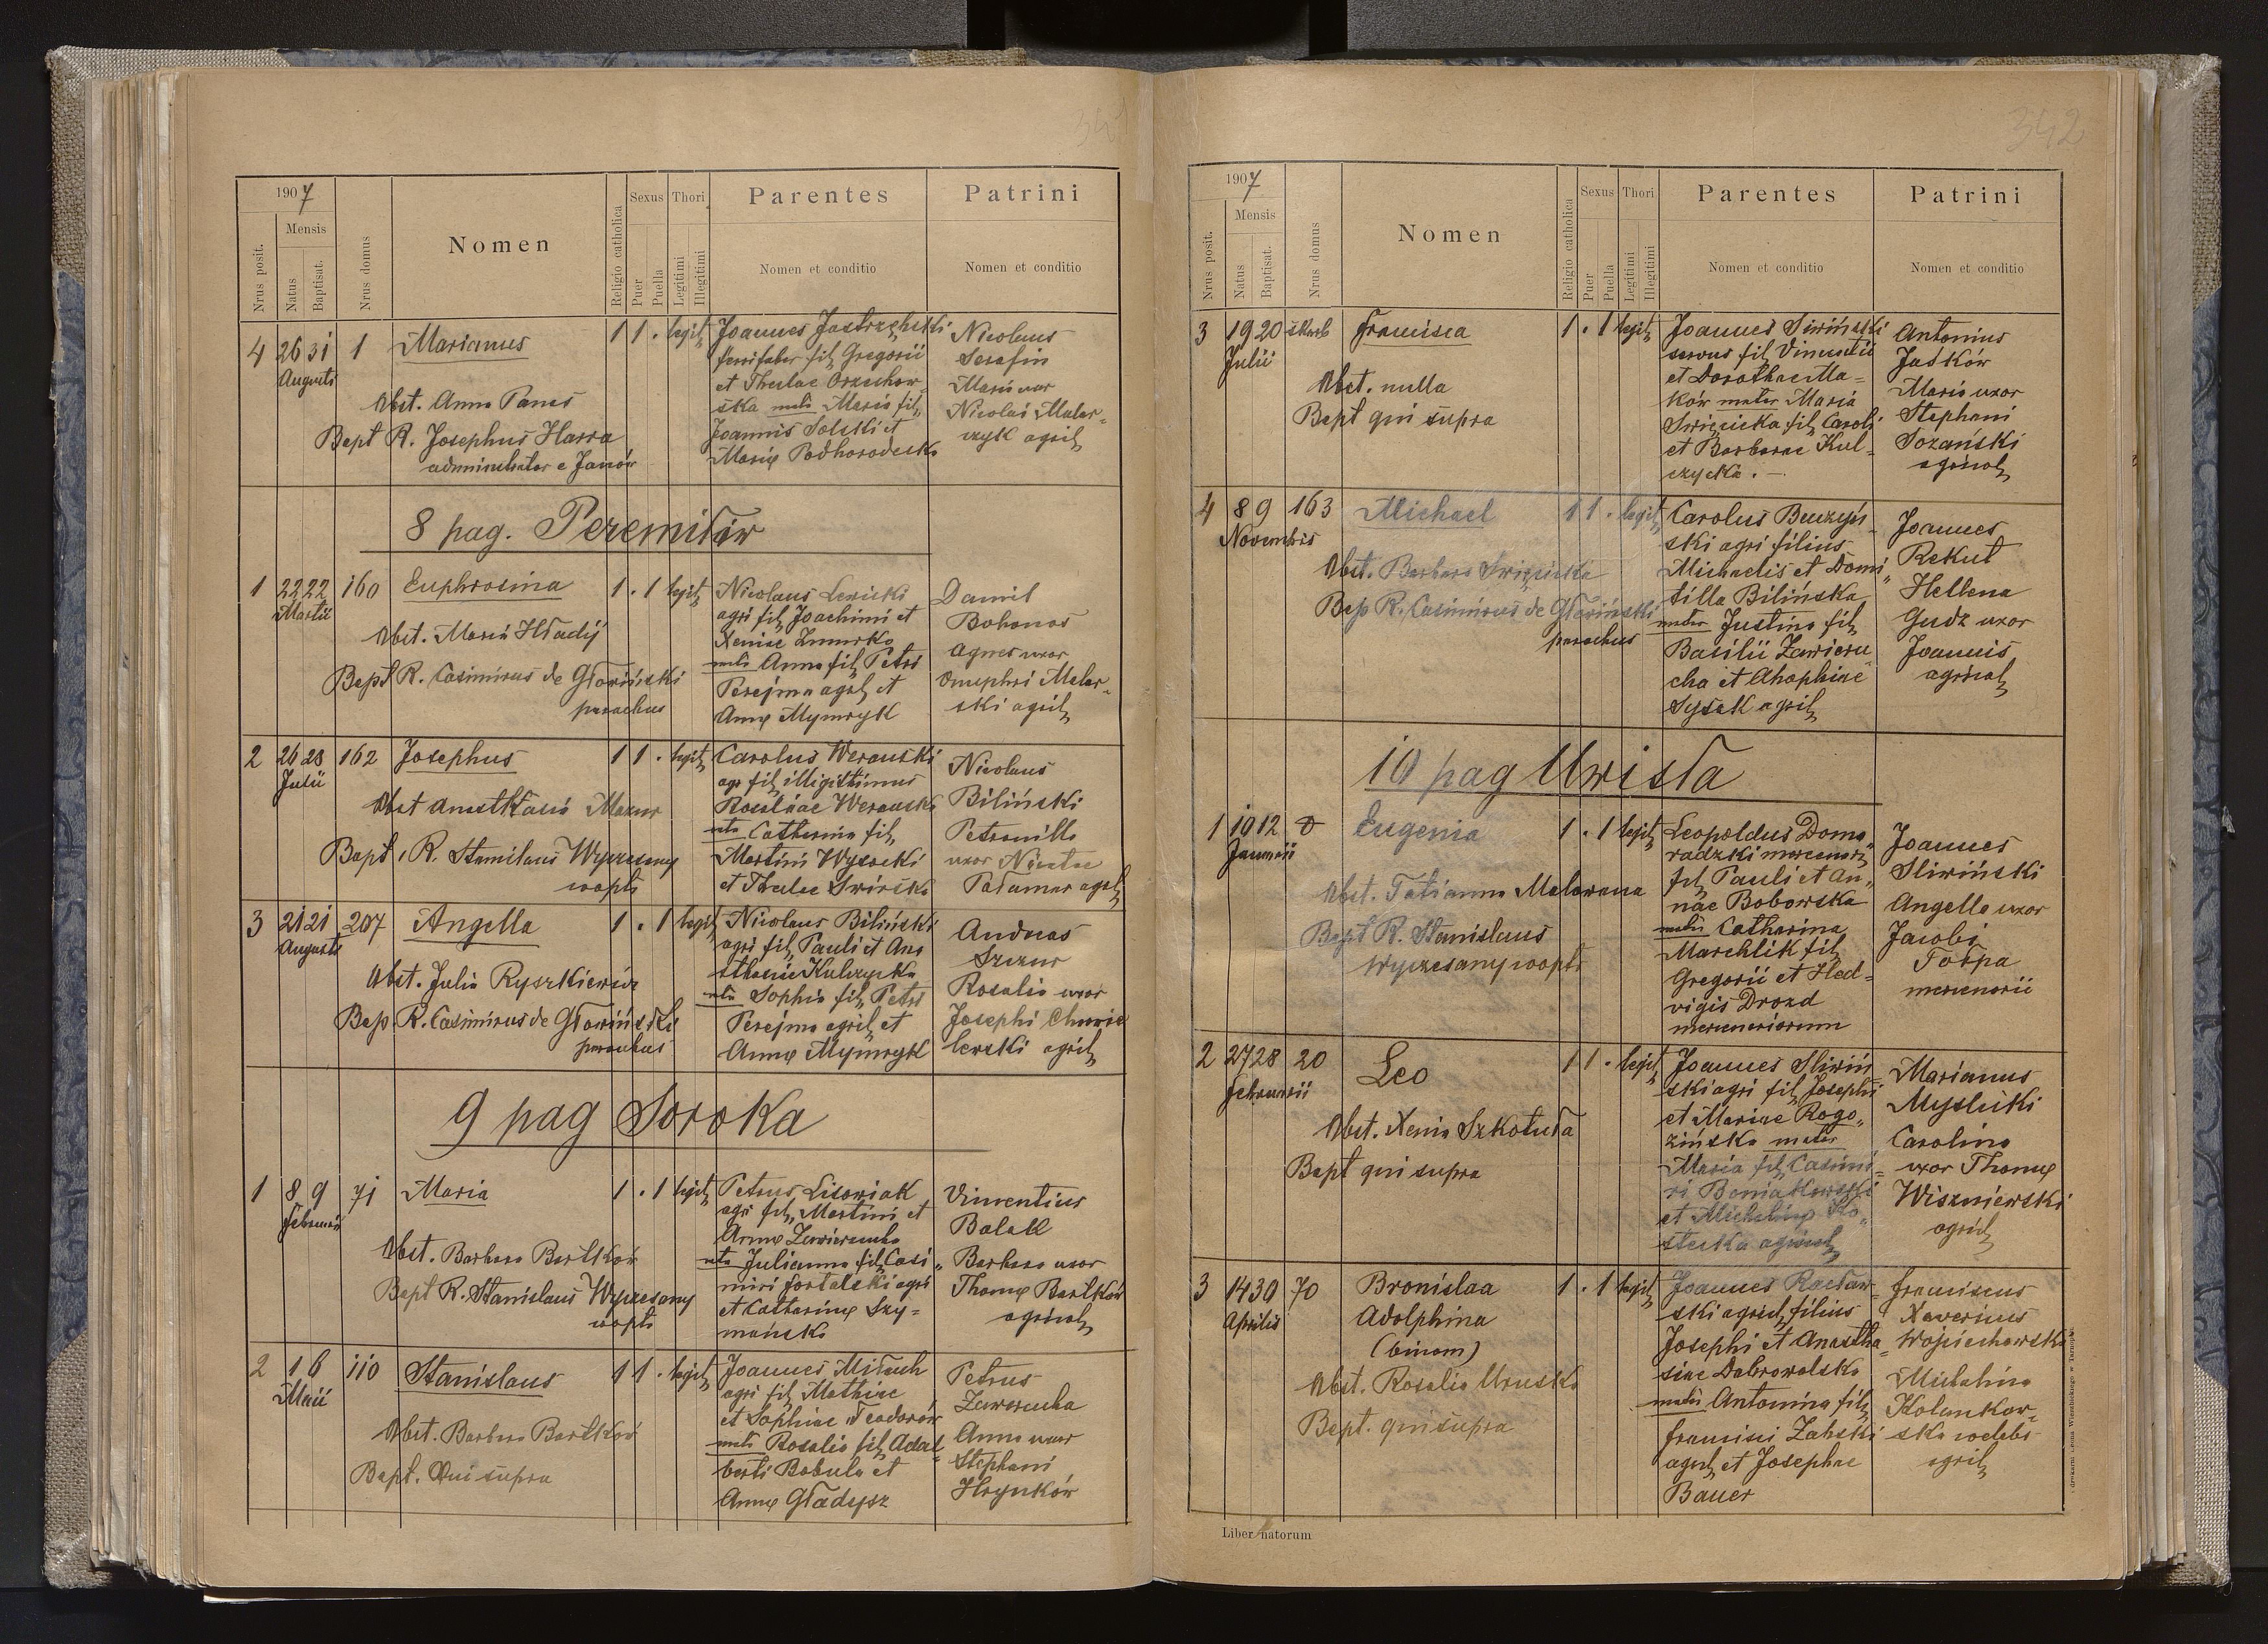 342
1907
Mensis
Nrus posit.
Natus
Baptisat.
Nrus domus
Nomen
Religio catholica
Sexus
Puer
Puella
Thori
Legitimi
Illegitimi
Parentes
Nomen et conditio
Patrini
Nomen et conditio
4 26 31 1 Marianus 1 1 . legit
Augusti
Obst. Anna Panas
Bapt R. Josephus Harra
administrator e Janów
Joannes Jastrzębski
ferrifaber fil Gregorii
et Theclae Orzechow-
ska mater Maria fil
Joannis Solski et
Marię Podhorodecka
Nicolaus
Serafin
Maria uxor
Nicolai Malar-
czyk agricol
8 pag. Peremiłów
1 22 22 160 Euphrosina 1 . 1 legit
Martii
Obst. Maria Hładij
Bapt R. Casimirus de Głowiński
parochus
Nicolaus Lewicki
agri fil Joachimi et
Xeniae Zmurko
mater Anna fil Petri
Perejma agrl et
Annę Mymryk
Daniil
Bohonos
Agnes uxor
Onuphri Malar-
ski agricol
2 26 28 162 Josephus 1 1 . legit
Julii
Obst Anastkasia Mazur
Bapt. R. Stanislaus Wyrzesany
coopts
Carolus Weranski
agr fil illigittimus
Rosaliae Weranska
mater Catherina fil
Martini Wysocki
et Theclae Swirska
Nicolaus
Biliński
Petronilla
uxor Nicetae
Pałamar agrl
3 21 21 207 Angella 1 . 1 legit
Augusti
Obst. Julia Ryszkiewicz
Bap. R. Casimirus de Głowiński
parochus
Nicolaus Biliński
agri fil Pauli et Ana
sthasiae Kulczycka
mater Sophia fil Petri
Perejma agril et
Annę Mymryk
Andreas
Szczur
Rosalia uxor
Josephi Chmie
lewski agril
9 pag Soroka
1 8 9 71 Maria 1 . 1 legit
Februarii
Obst. Barbara Bartków
Bapt R. Stanislaus Wyrzesany
coopts
Petrus Lisowiak
agri fil Martini et
Annę Zawierucha
mater Julianna fil Casi
miri Fortalski agri
et Catharinę Szy-
mańska
Vincentius
Balak
Barbara uxor
Thomę Bartków
agricol
2 1 6 110 Stanislaus 1 1 . legit
Maii
Obst. Barbara Bartków
Bapt. Qui supra
Joannes Mitach
agri fil Mathiae
et Sophiae Teodorów
mater Rosalia fil Adal
berti Babula et
Annę Gładysz
Petrus
Zaworucha
Anna uxor
Stephani
Hrynków
1907
Mensis
Nrus posit.
Natus
Baptisat.
Nrus domus
Nomen
Religio catholica
Sexus
Puer
Puella
Thori
Legitimi
Illegitimi
Parentes
Nomen et conditio
Patrini
Nomen et conditio
3 19 20 skarb Francisca 1 . 1 legit
Julii
Obst. nulla
Bapt qui supra
Joannes Siwiński
servus fil Vincentii
et Dorotheae Ma-
ków mater Maria
Swięcicka fil Caroli
et Barbarae Kul-
czycka . -
Antonius
Jaśków
Maria uxor
Stephani
Sozański
agricol
4 8 9 163 Michael 1 1 . legit
Novembris
Obst. Barbara Swięcicka
Bap R. Casimirus de Głowiński
parochus
Carolus Buczyń
ski agri filius
Michaelis et Domi
tilla Bilińska
mater Justina fil
Basilii Zawieru
cha et Ahaphiae
Sysak agril
Joannes
Rekut
Hellena
Gudz uxor
Joannis
agricol
10 pag Uwisła
1 10 12 0 Eugenia 1 . 1 legit
Januarii
Obst. Tatianna Malowana
Bapt R. Stanislaus
Wyrzesany coopts
Leopoldus Doma
radzki mercenari
fil Pauli et An-
nae Boborska
mater Catharina
Marchlik fil
Gregorii et Hed-
vigis Drozd
mercenariorum
Joannes
Sliwiński
Angella uxor
Jacobi
Torpa
mercenarii
2 27 28 20 Leo 1 1 . legit
Februarii
Obst. Xenia Szkotuła
Bapt qui supra
Joannes Sliwiń
ski agri fil Josephi
et Mariae Rogo-
zińska mater
Maria fil Casimi-
ri Boniakowski
et Michalinę Ko-
stecka agricol
Marianus
Myslicki
Carolina
uxor Thomę
Wiszniewski
agril
3 14 30 70 Bronislaa 1 . 1 legit
Aprilis
Adolphina
(binom)
Obst. Rosalia Uruska
Bapt. qui supra
Joannes Racław-
ski agricol filius
Josephi et Anastha
siae Dabrowolska
mater Antonina fil
Francisci Zabski
agrl et Josephae
Bauer
Franciscus
Xaverius
Wojciechowski
Michalina
Kolankow-
ska coelebs
agril
Liber natorum